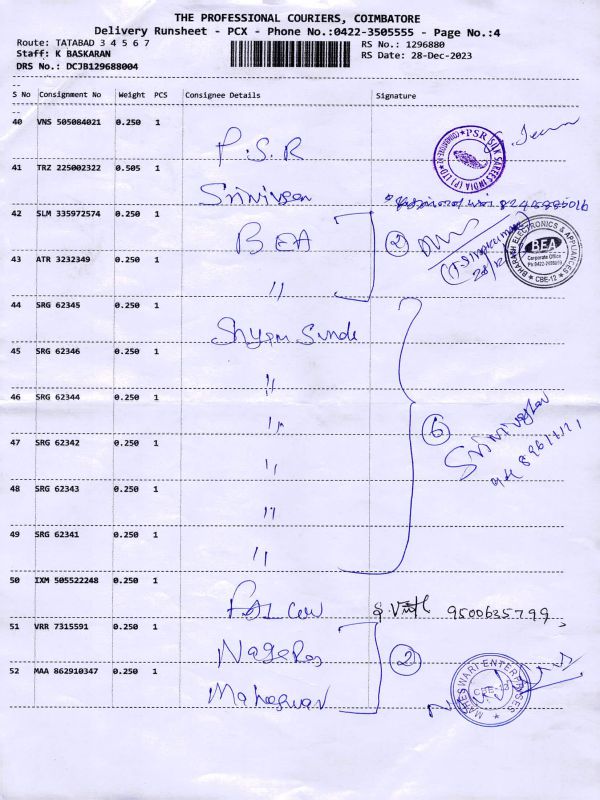 THE PROFESSIONAL COURIERS, COIMBATORE
Delivery Runsheet - PCX - Phone No.:0422-3505555 - Page No.:4
Route: TATABAD 3 4 5 6 7
RS No.: 1296880
Staff: K BASKARAN
RS Date: 28-Dec-2023
DRS No.: DCJB129688004
S No Consignment No Weight PCS Consignee Details Signature
40 VNS 505084021 0.250 1 P.S.R
PSR SILK SAREES INDIA (P) LTD
41 TRZ 225002322 0.505 1 Srinivasan
42 SLM 335972574 0.250 1 BEA 2
BHARATH ELECTRONICS & APPLIANCES
BEA
Corporate Office
CBE-12
43 ATR 3232349 0.250 1 "
44 SRG 62345 0.250 1 Shyam Sunde
45 SRG 62346 0.250 1 "
46 SRG 62344 0.250 1 "
6
47 SRG 62342 0.250 1 "
48 SRG 62343 0.250 1 "
49 SRG 62341 0.250 1 "
50 IXM 505522248 0.250 1 Falcon 9500635799
51 VRR 7315591 0.250 1 Nage
2
52 MAA 862910347 0.250 1 Maheswar
MAHESWARI ENTERPRISES